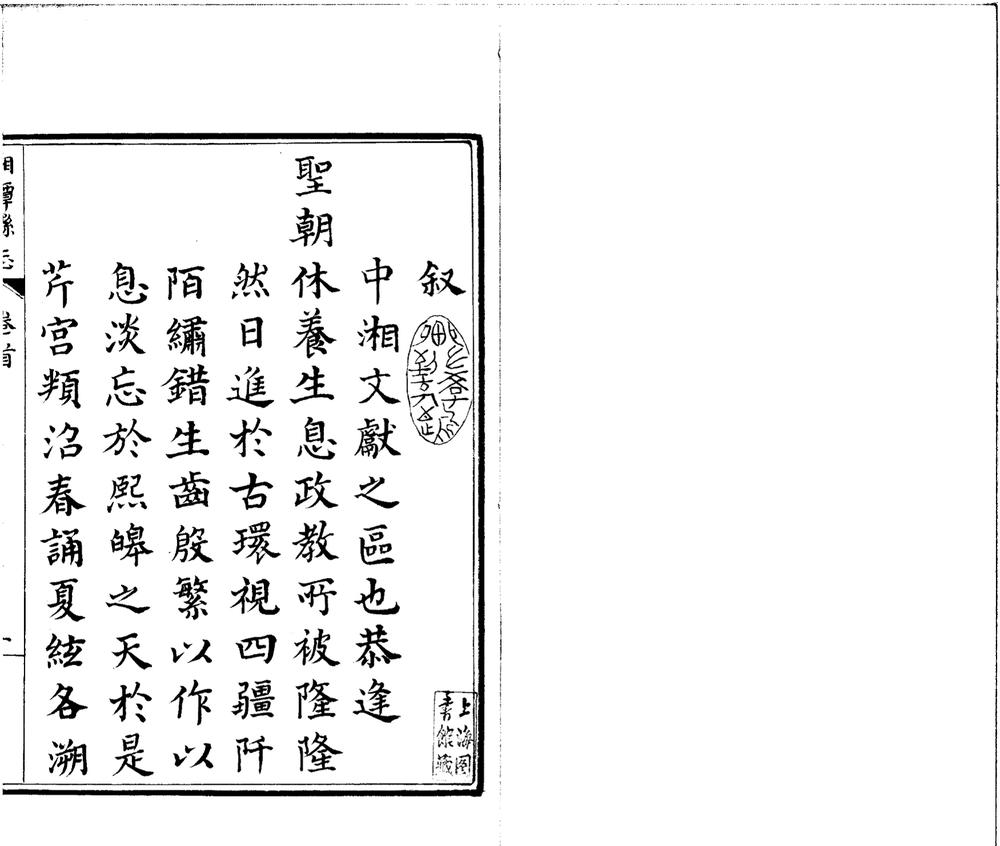 叙
中湘文獻之區也恭逢
聖朝休養生息政教所被隆隆
然日進於古環視四疆阡
陌繡錯生齒殷繁以作以
息淡忘於熙皞之天於是
芹宮頖沼春誦夏絃各溯
湘潭縣志 卷首
上海圖
書館藏